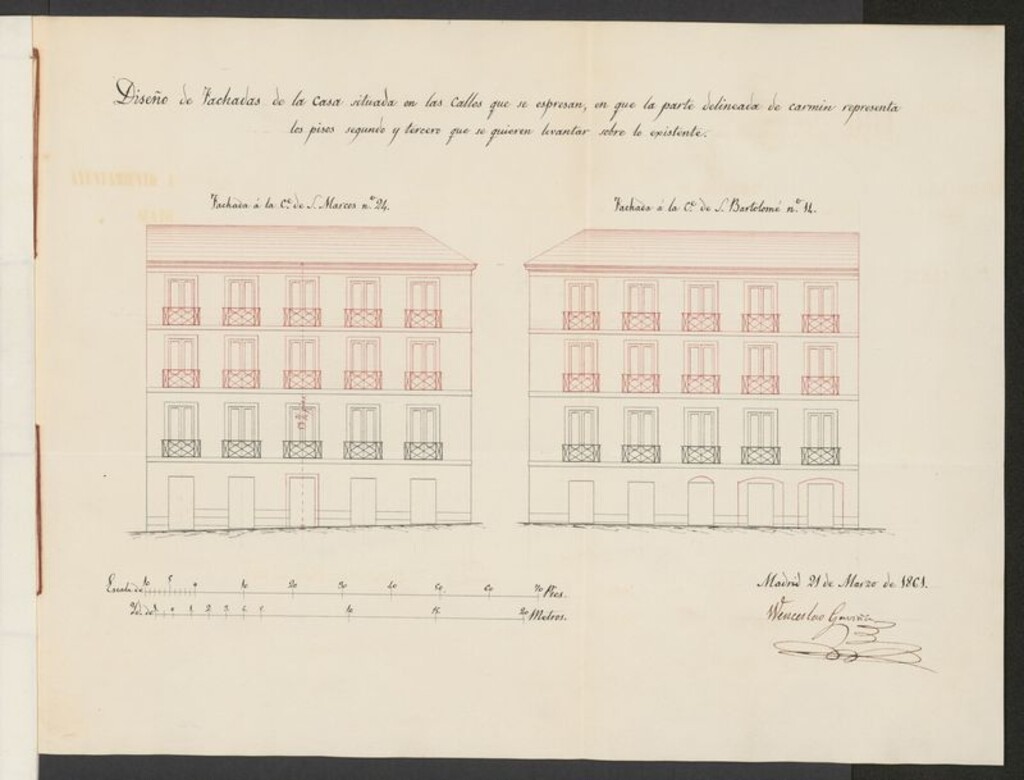 Diseño de Fachadas de la casa situada en las Calles que se espresan, en que la parte delineada de carmin representa
los pisos segundo y tercero que se quieren levantar sobre lo existente.
Fachada á la C.e de S. Marcos n.º 24.
Fachada á la C.e de S. Bartolomé n.º 14.
Escala de 10 5 0 10 20 30 40 50 60 70 Pies.
Yd. de 1 0 1 2 3 4 5 10 15 20 Metros.
Madrid 21 de Marzo de 1861.
Wenceslao Gaviña
AYUNTAMIENTO